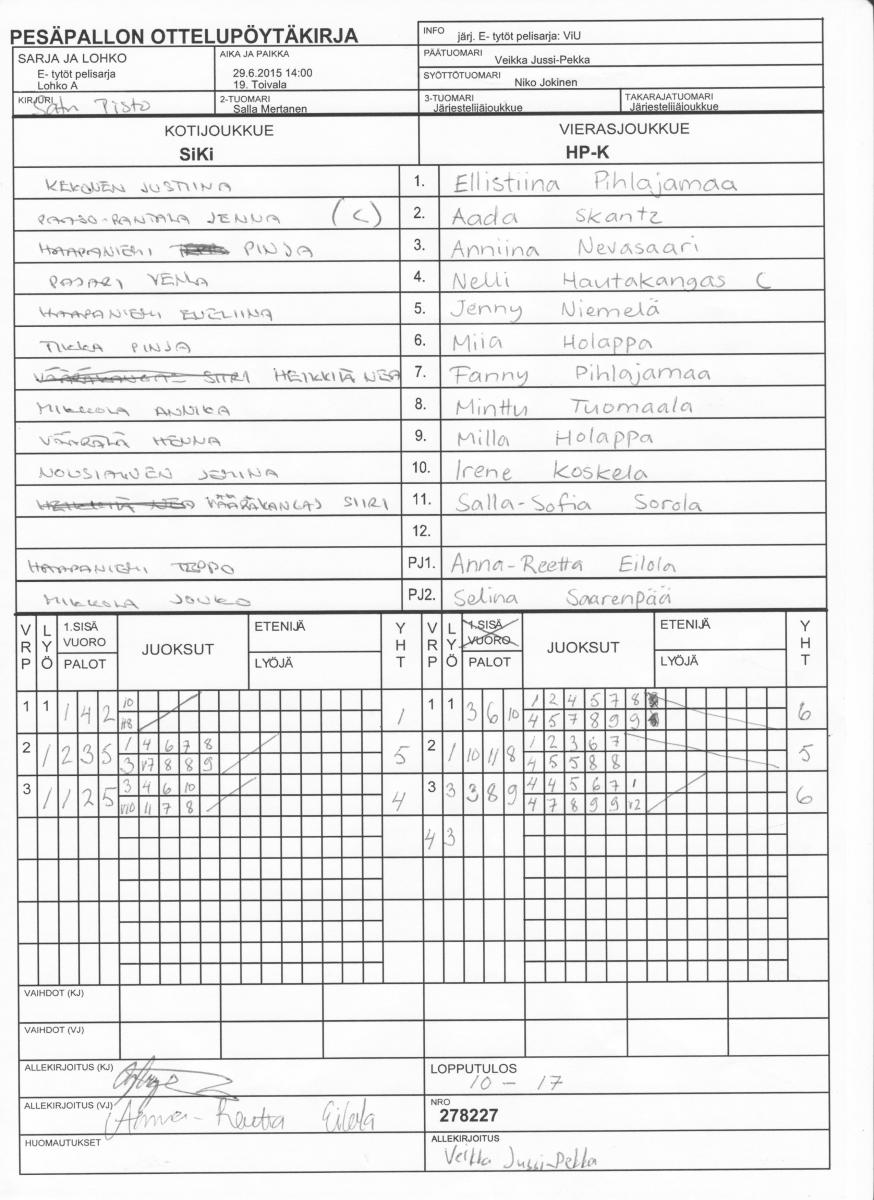 PESÄPALLON OTTELUPÖYTÄKIRJA
INFO järj. E- tytöt pelisarja: ViU
SARJA JA LOHKO
E- tytöt pelisarja
Lohko A
AIKA JA PAIKKA
29.6.2015 14:00
19. Toivala
PÄÄTUOMARI Veikka Jussi-Pekka
SYÖTTÖTUOMARI Niko Jokinen
KIRJURI Satu Pistö
2-TUOMARI
Salla Mertanen
3-TUOMARI
Järjestelijäjoukkue
TAKARAJATUOMARI
Järjestelijäjoukkue
KOTIJOUKKUE
SiKi
VIERASJOUKKUE
HP-K
KEKONEN JUSTIINA 1. Ellistiina Pihlajamaa
PAASO-RANTALA JENNA (C) 2. Aada Skantz
HAAPANIEMI PINJA 3. Anniina Nevasaari
PAJARI VENLA 4. Nelli Hautakangas C
HAAPANIEMI EVELIINA 5. Jenny Niemelä
TIKKA PINJA 6. Miia Holappa
VÄÄRÄKANGAS SIIRI HEIKKILÄ NEA 7. Fanny Pihlajamaa
MIKKOLA ANNIKA 8. Minttu Tuomaala
VÄÄRÄLÄ HENNA 9. Milla Holappa
NOUSIAINEN JEMINA 10. Irene Koskela
HEIKKILÄ NEA VÄÄRÄKANGAS SIIRI 11. Salla-Sofia Sorola
12.
HAAPANIEMI TEPPO PJ1. Anna-Reetta Eilola
MIKKOLA JOUKO PJ2. Selina Saarenpää
VRP LYÖ 1.SISÄ VUORO PALOT JUOKSUT ETENIJÄ LYÖJÄ YHT VRP LYÖ 1.SISÄ VUORO PALOT JUOKSUT ETENIJÄ LYÖJÄ YHT
1 1 1 4 2 10 1 1 1 3 6 10 1 2 4 5 7 8 6
4 5 7 8 9 9
2 1 2 3 5 1 4 6 7 8 5 2 1 10 11 8 1 2 3 6 7 5
3 v7 8 8 9 4 5 5 8 8
3 1 1 2 5 3 4 6 10 4 3 3 3 8 9 4 4 5 6 7 1 6
v10 11 7 8 4 7 8 9 9 v2
4 3
VAIHDOT (KJ)
VAIHDOT (VJ)
ALLEKIRJOITUS (KJ)
LOPPUTULOS
10 - 17
ALLEKIRJOITUS (VJ) Anna-Reetta Eilola
NRO
278227
HUOMAUTUKSET
ALLEKIRJOITUS
Veikka Jussi-Pekka